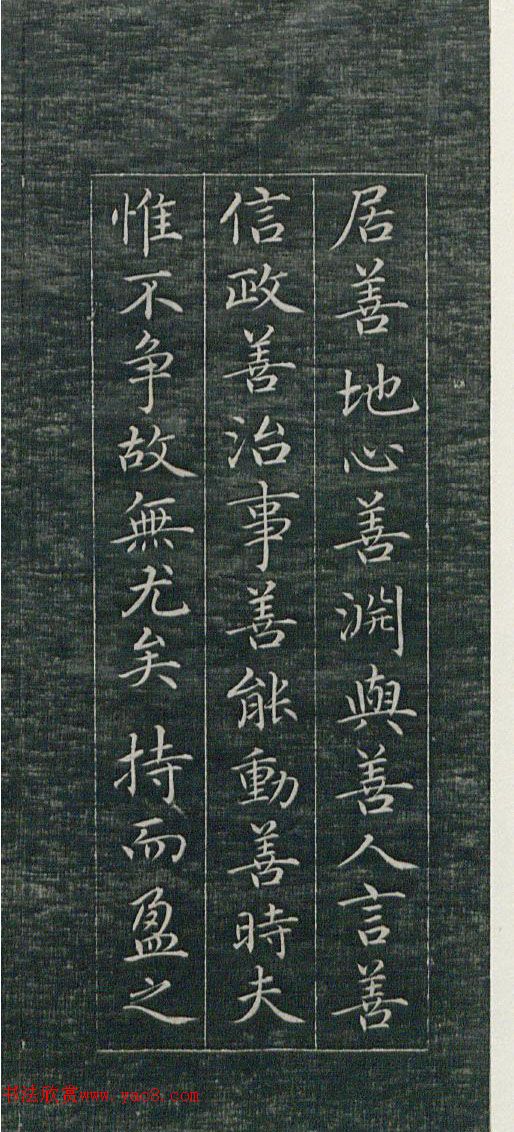 居善地心善淵與善人言善
信政善治事善能動善時夫
惟不争故無尤矣 持而盈之
书法欣赏www.yac8.com